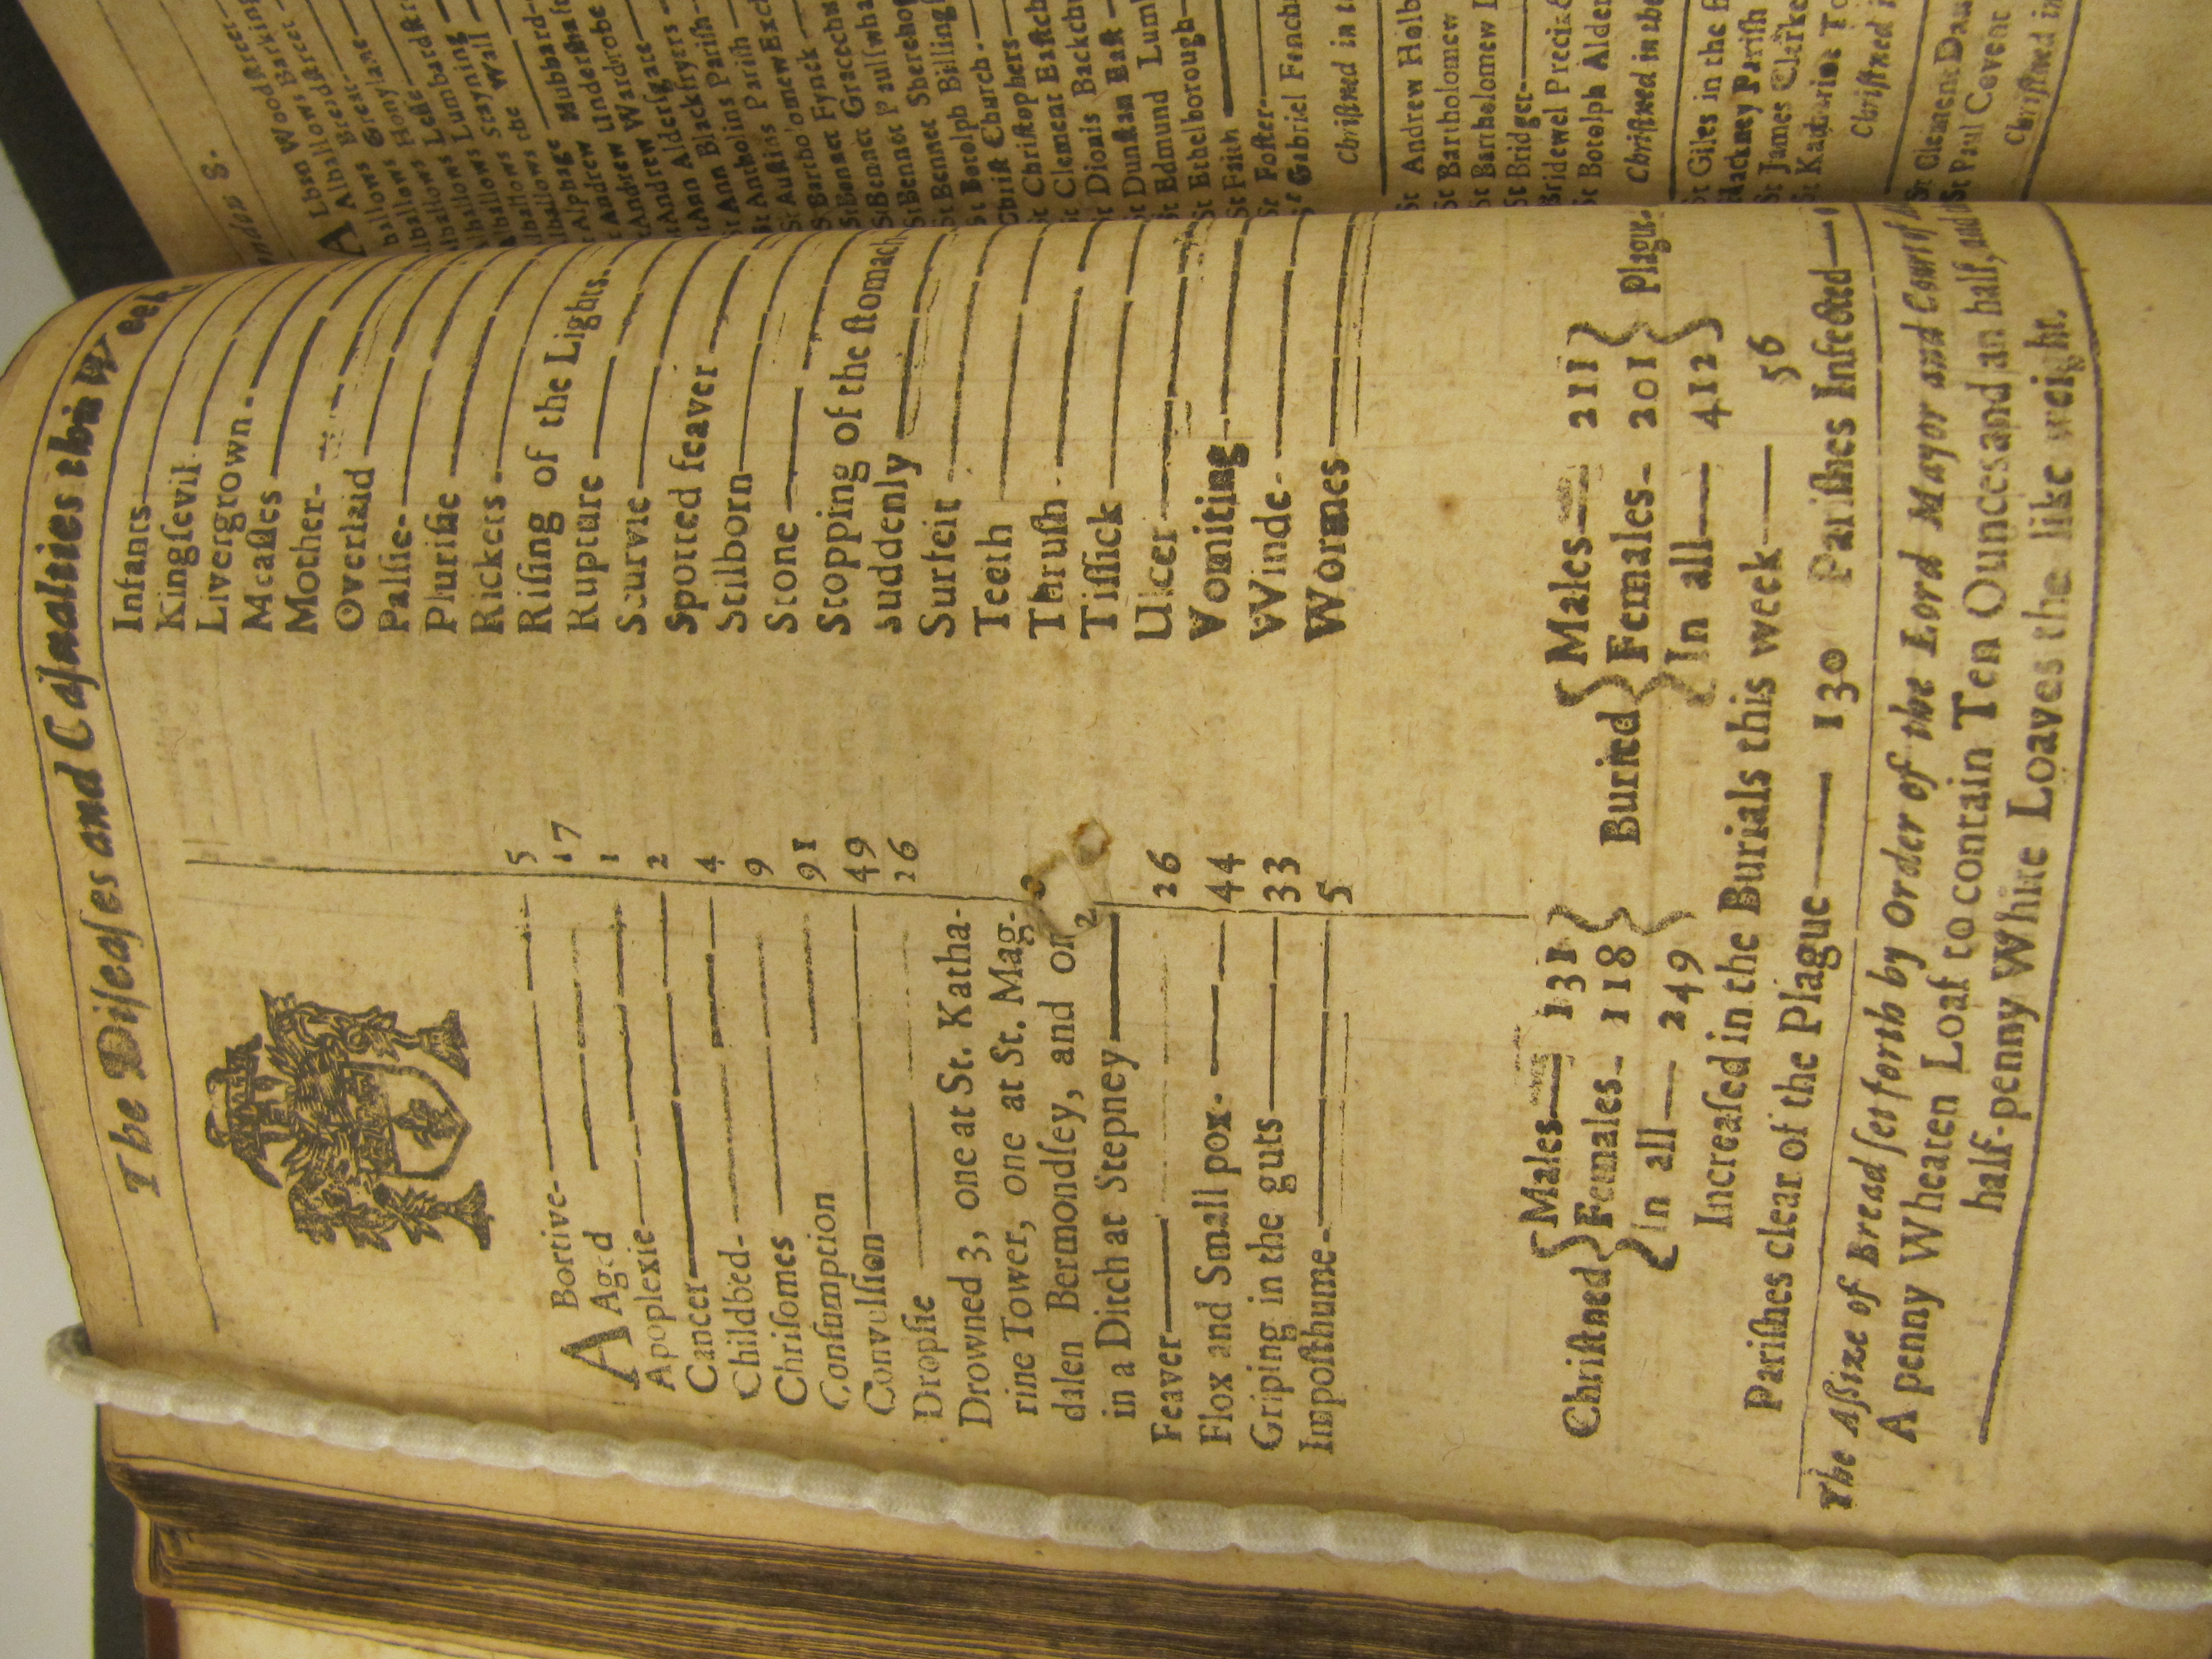 The Diſeaſes and Caſualties this Week
A Bortive 5
Aged 17
Apoplexie 1
Cancer 2
Childbed 4
Chriſomes 9
Conſumption 91
Convulſion 49
Dropſie 26
Drowned 3, one at St. Katha-
rine Tower, one at St. Mag-
dalen Bermondſey, and
in a Ditch at Stepney
Feaver 26
Flox and Small pox 44
Griping in the guts 33
Impoſthume 5
Infants
Kingſevil
Livergrown
Meaſles
Mother
Overlaid
Palſie
Pluriſie
Rickets
Riſing of the Lights
Rupture
Scurvie
Spotted feaver
Stilborn
Stone
Stopping of the ſtomach
Suddenly
Surfeit
Teeth
Thruſh
Tiſſick
Ulcer
Vomiting
Winde
Wormes
Chriſtned { Males 131 Females 118 In all 249 }
Buried { Males 211 Females 201 In all 412 } Plague
Increaſed in the Burials this week 56
Pariſhes clear of the Plague 130 Pariſhes Infected
The Aſsize of Bread ſet forth by Order of the Lord Mayor and Court of
A penny Wheaten Loaf to contain Ten Ounces and an half, and
half-penny White Loaves the like weight.
London 8.
Alballows Great
Alballows Honylane
Alballows Lumbardſtr
Alballows Stayning
Alballows the Wall
St Alphage
St Andrew Hubbard
St Andrew Underſhaft
St Andrew Wardrobe
St Ann Alderſgate
St Ann Blackfryers
St Antholins Pariſh
St Auſtins Pariſh
St Bartholomew Exch
St Bennet Fynck
St Bennet Gracechu
St Bennet Paulſwha
St Bennet Sherehog
St Botolph Billing
Chriſt Church
St Chriſtophers
St Clement Eaſtch
St Dionis Backchu
St Dunſtan Eaſt
St Edmund Lumb
St Ethelborough
St Faith
St Foſter
St Gabriel Fenchu
Chriſtned in
St Andrew Holb
St Bartholomew
St Bartholomew
St Bridget
Bridewel Precin
St Botolph Alder
Chriſtned in the
St Giles in the
Hackney Pariſh
St James Clarke
St Katharines To
Chriſtned
St Clement Dan
St Paul Covent
Chriſtned in